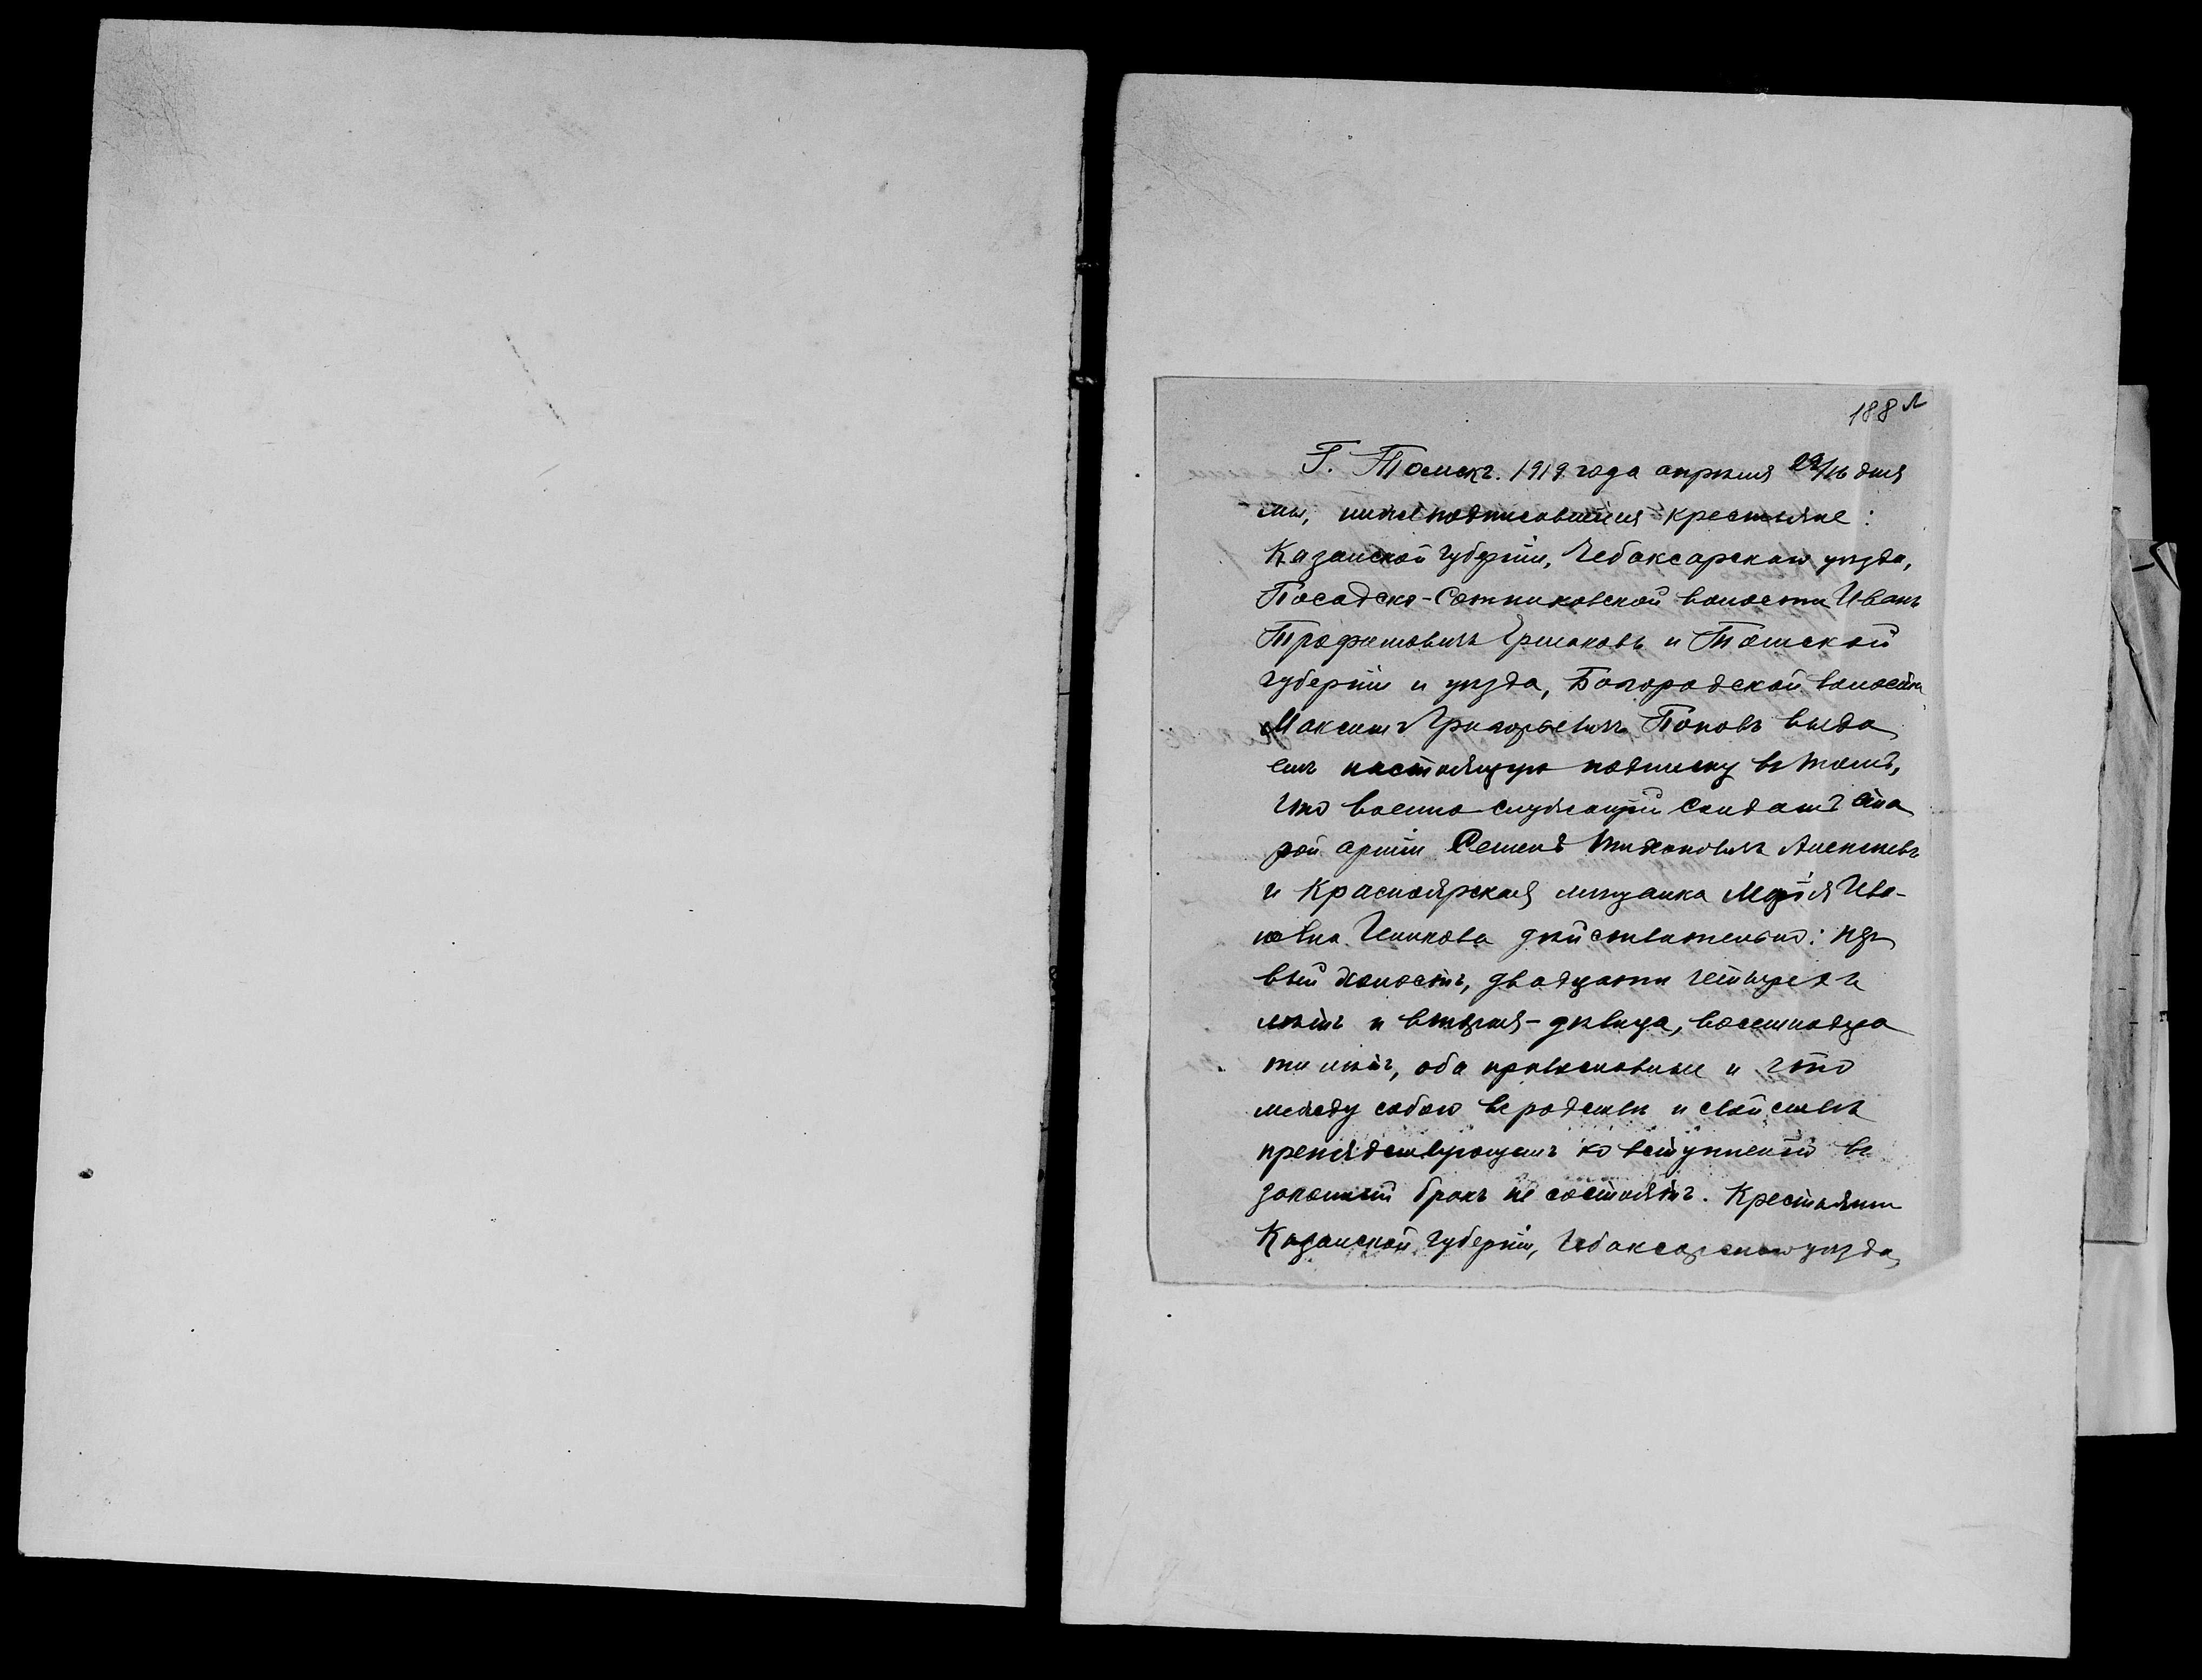 188 л
Г. Томскъ. 1919 года апрѣля 29/16 дня
мы, нижеподписавшіеся крестьяне:
Казанской губерніи, Чебоксарскаго уѣзда,
Посадско-Сотниковской волости Иванъ
Трофимовичъ Ермаковъ и Томской
губерніи и уѣзда, Богородской волости
Максимъ Григорьевичъ Поповъ выда
емъ настоящую подписку въ томъ,
что военно-служащій солдатъ ста
рой арміи Семенъ Тихоновичъ Алексѣевъ
и Красноярская мѣщанка Марія Ива-
новна действительно: пер
вый холостъ, двадцати четырехъ
лѣтъ и вторая - дѣвица, восемнадца
ти лѣтъ, оба православные и что
между собою въ родствѣ и свойствѣ
препядствующемъ ко вступленію въ
законный бракъ не состоятъ. Крестьянин
Казанской губерніи, Чебоксарскаго уѣзда,